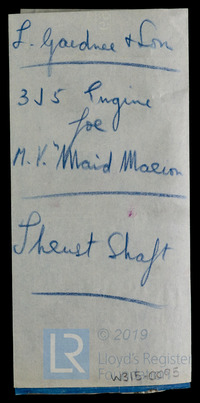 L. Gardner & Son
3J5 Engine
for
M.V. "Maid Marion
Thrust Shaft
© 2019
LR
Lloyd's Register
W315-0095